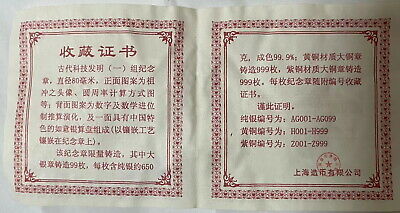 收藏证书
古代科技发明（一）组纪念
章，直径80毫米，正面图案为祖
冲之头像、圆周率计算方式图
等；背面图案为数字及数学进位
制推算演化，及一面具有中国特
色的如意银算盘组成(以镶嵌工艺
镶嵌在纪念章上)。
该纪念章限量铸造，其中大
银章铸造99枚，每枚含纯银约650
克，成色99.9%；黄铜材质大铜章
铸造999枚，紫铜材质大铜章铸
造999枚，每枚纪念章随附编号收藏
证书。
谨此证明。
纯银编号为：AG001-AG099
黄铜编号为：H001-H999
紫铜编号为：Z001-Z999
上海造币有限公司